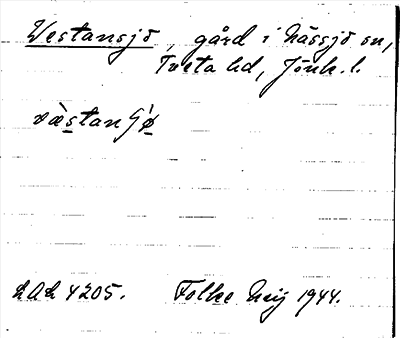 Vestansjö, gård i Nässjö sn,
Tveta hd, Jönk. l.
LAL 4205. Folke Meij 1944.